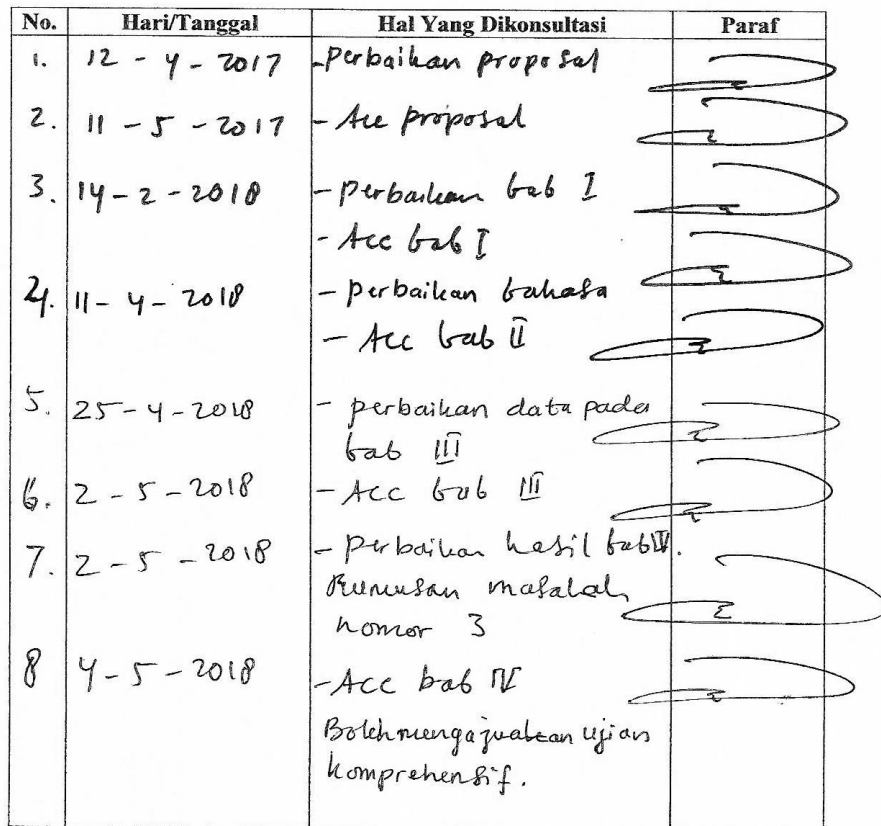 No. Hari/Tanggal Hal Yang Dikonsultasi Paraf
1. 12 - 4 - 2017 - Perbaikan proposal
2. 11 - 5 - 2017 - Acc proposal
3. 14 - 2 - 2018 - perbaikan bab I
- Acc bab I
4. 11 - 4 - 2018 - perbaikan bahasa
- Acc bab II
5. 25 - 4 - 2018 - perbaikan data pada
bab III
6. 2 - 5 - 2018 - Acc bab III
7. 2 - 5 - 2018 - perbaikan hasil bab IV.
Rumusan masalah
nomor 3
8 4 - 5 - 2018 - Acc bab IV
Boleh mengajukan ujian
komprehensif.